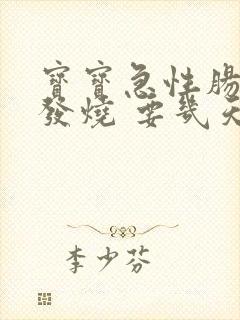 寶寶急性腸
發燒 要幾天
李少芬